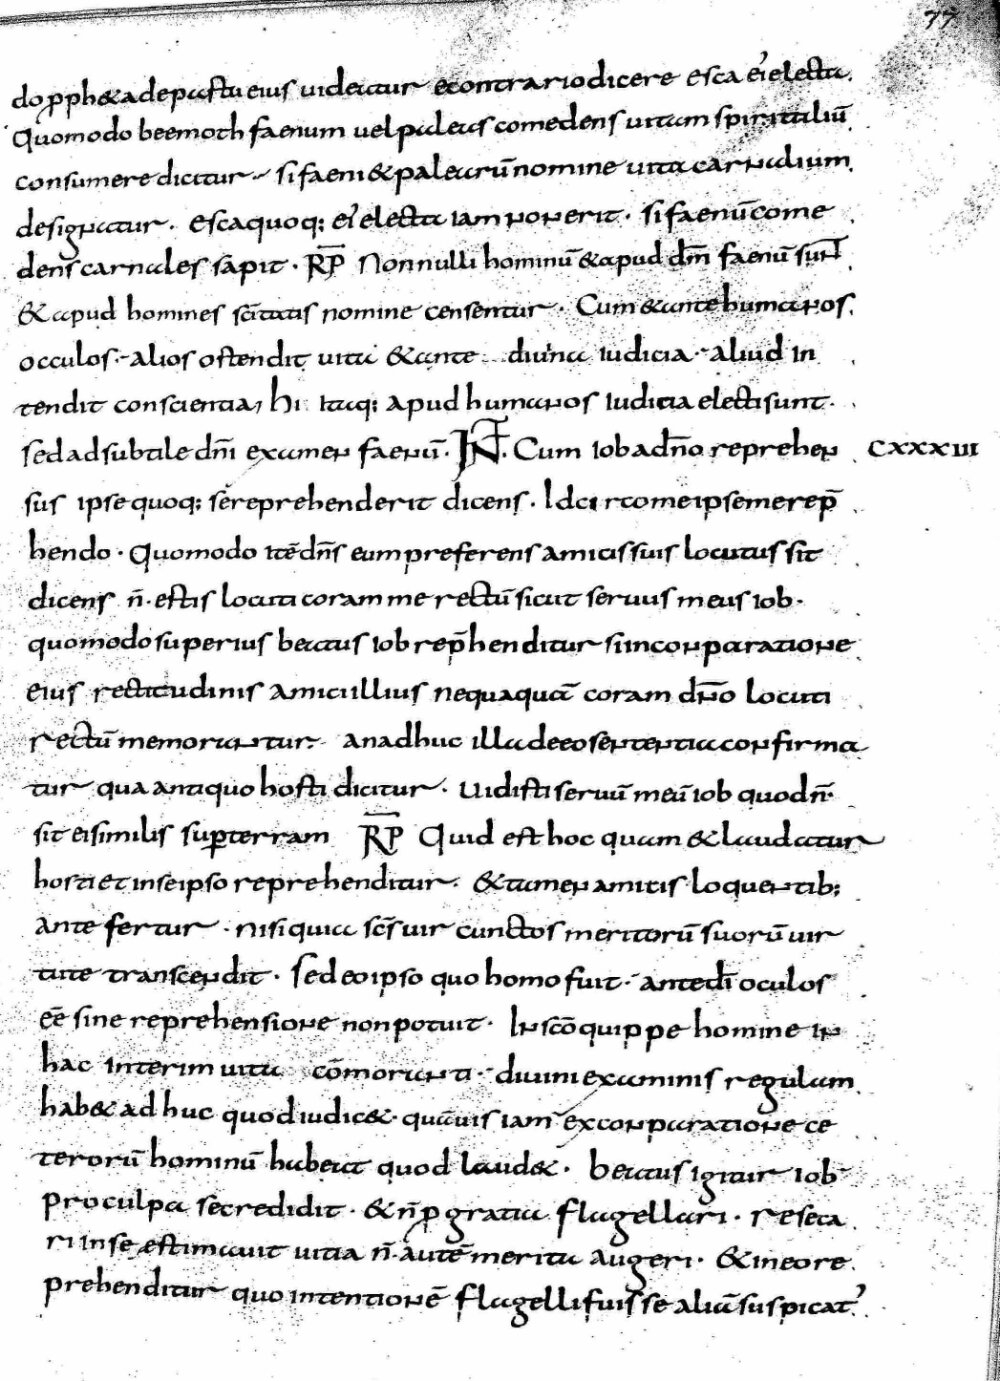 77
do ꝓph& a de pastu eius uideatur econtrario dicere esca ei᾽ electa.
Quomodo beemoth faenum uel paleas comedens uitam spiritaliū
consumere dicitur. si faeni & palearū nomine uita carnalium
designatur. esca quoq; ei᾽ electa iam non erit. si faenū come
dens carnales sapit. R̄P̄ Nonnulli hominū & apud dm̄ faenū sunt
& apud homines sc̄itatis nomine censentur. Cum & ante humanos
occulos. alios ostendit uita & ante diuina iudicia. aliud in
tendit conscientia, hi itaq; apud humanos iudicia electi sunt.
sed ad subtile dn̄i examen faenū. IÑ. Cum iob a dn̄o reprehen CXXXIII
sus ipse quoq; se reprehenderit dicens. Idcirco me ipse me rep̄
hendo. Quomodo itē dn̄s eum preferens amicis suis locutus sit
dicens n̄. estis locuti coram me rectū sicut seruus meus iob.
quomodo superius beatus iob rep̄henditur si in conparatione
eius rectitudinis amici illius nequaquā coram dn̄o locuti
rectū memorantur. an adhuc illa de eo sententia confirma
tur qua antiquo hosti dicitur. Uidisti seruū meū iob quod n̄.
sit ei similis suꝑ terram R̄P̄ Quid est hoc quam & laudatur
hosti et in se ipso reprehenditur. & tamen amicis loquentib;
ante fertur. nisi quia sc̄s uir cunctos meritorū suorū uir
tute transcendit. Sed eo ipso quo homo fuit. ante dī oculos
eē sine reprehensione non potuit. In sc̄o quippe homine in
hac interim uita cōmoranti. diuini examinis regulam
hab& ad huc quod iudic&. quāuis iam ex conparatione ce
terorū hominū habeat quod laud&. beatus igitur iob
pro culpa se credidit. & n̄ ꝓ gratia flagellari. reseca
ri in se estimauit uitia n̄. autē merita augeri. & in eo re
prehenditur quo intentionē flagelli fuisse aliā suspicat᾽.